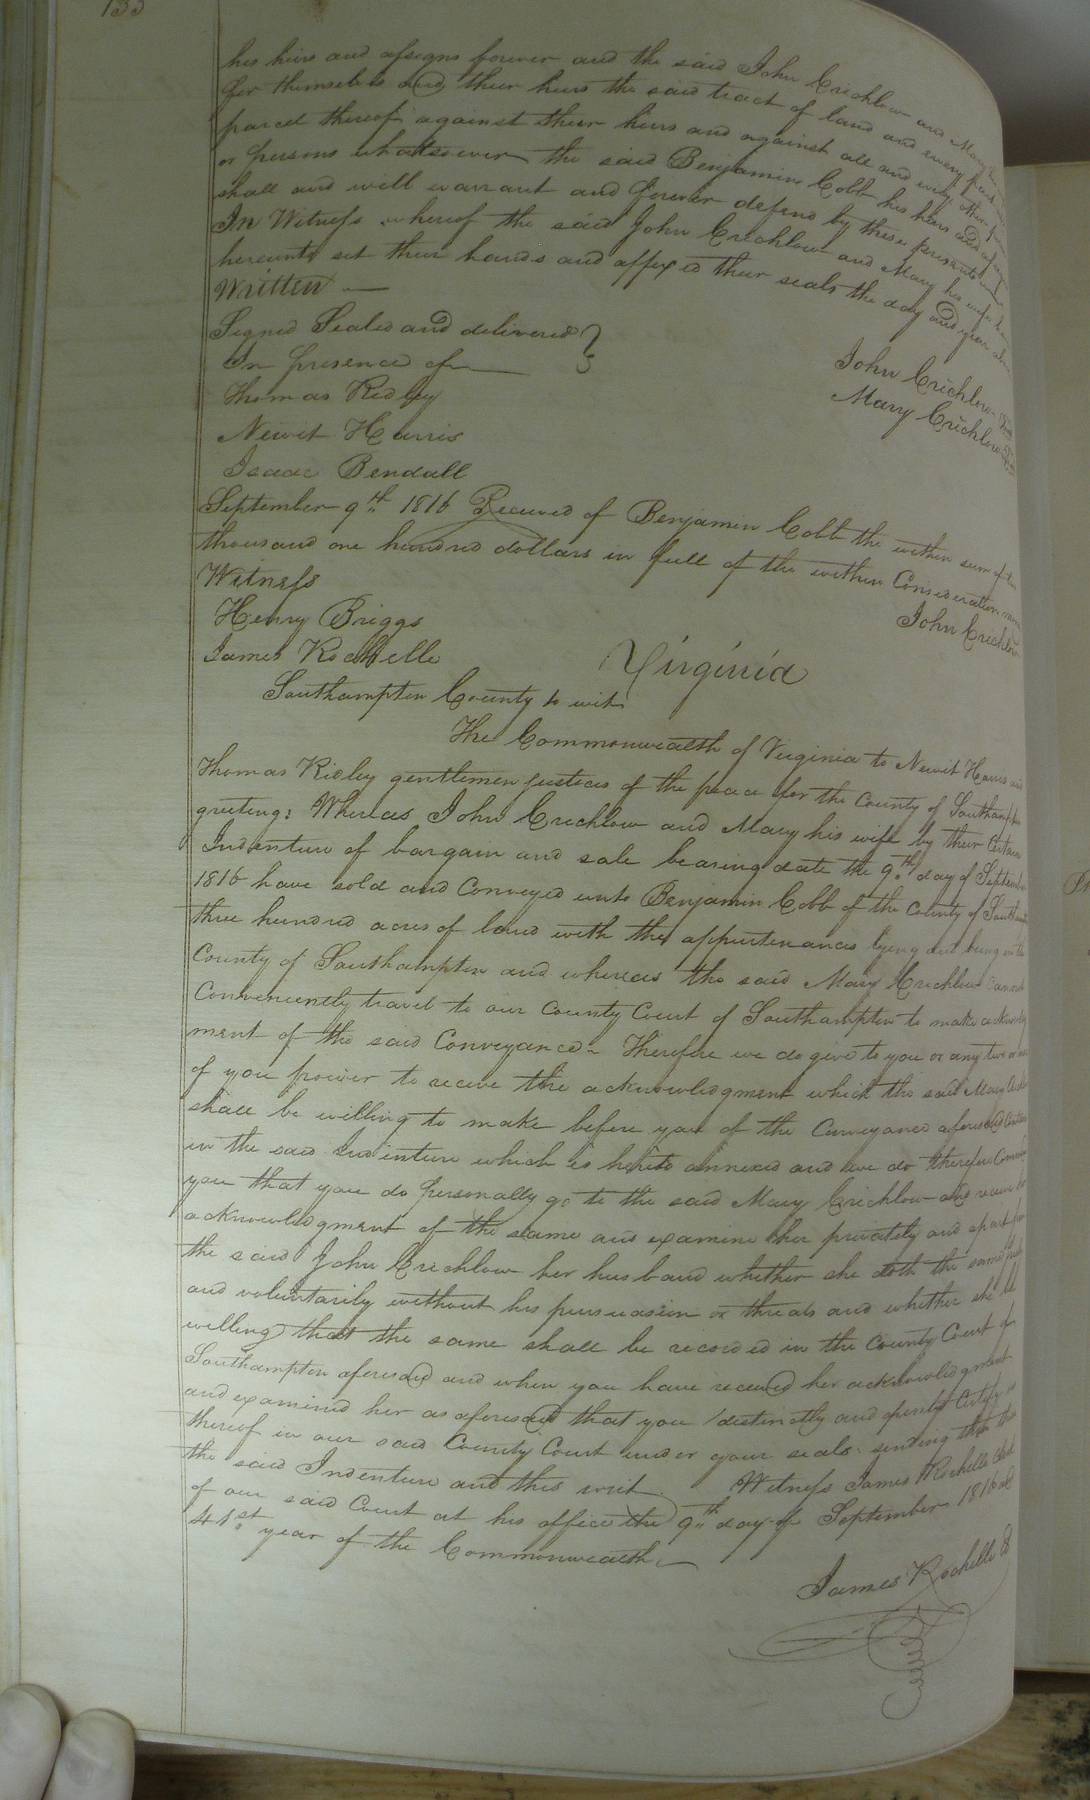 133
his heirs and assigns forever and the said John Crichlow and Mary his
for themselves and their heirs the said tract of land and every part and
parcel thereof against their heirs and against all and every other person
or persons whatsoever the said Benjamin Cobb his heirs and assigns
shall and will warrant and forever defend by these presents
In Witness whereof the said John Crichlow and Mary his wife have
hereunto set their hands and affixed their seals the day and year above
Written
Signed Sealed and delivered
In presence of
John Crichlow
Mary Crichlow
Thomas Ridley
Newit Harris
Isaac Bendall
September 9th 1816 Received of Benjamin Cobb the within sum of
thousand one hundred dollars in full of the within Consideration
Witness
John Crichlow
Henry Briggs
James Rochelle
Virginia
Southampton County to wit
The Commonwealth of Virginia to Newit Harris and
Thomas Ridley gentlemen justices of the peace for the County of Southampton
greeting: Whereas John Crichlow and Mary his wife by their Certain
Indenture of bargain and sale bearing date the 9th day of September
1816 have sold and Conveyed unto Benjamin Cobb of the County of Southampton
three hundred acres of land with the appurtenances lying and being in the
County of Southampton and whereas the said Mary Crichlow Cannot
Conveniently travel to our County Court of Southampton to make acknowledg
ment of the said Conveyance Therefore we do give to you or any two or
of you power to receive the acknowledgment which the said Mary
shall be willing to make before you of the Conveyance aforesaid Contained
in the said Indenture which is hereto annexed and we do therefore Command
you that you do personally go to the said Mary Crichlow and receive her
acknowledgment of the same and examine her privately and apart from
the said John Crichlow her husband whether she doth the same freely
and voluntarily without his persuasion or threats and whether she be
willing that the same shall be recorded in the County Court of
Southampton aforesaid and when you have received her acknowledgment
and examined her as aforesaid that you distinctly and openly Certify us
thereof in our said County Court under your seals sending then this
the said Indenture and this writ. Witness James Rochelle Clerk
of our said Court at his office the 9th day of September 1816 and
41st year of the Commonwealth
James Rochelle